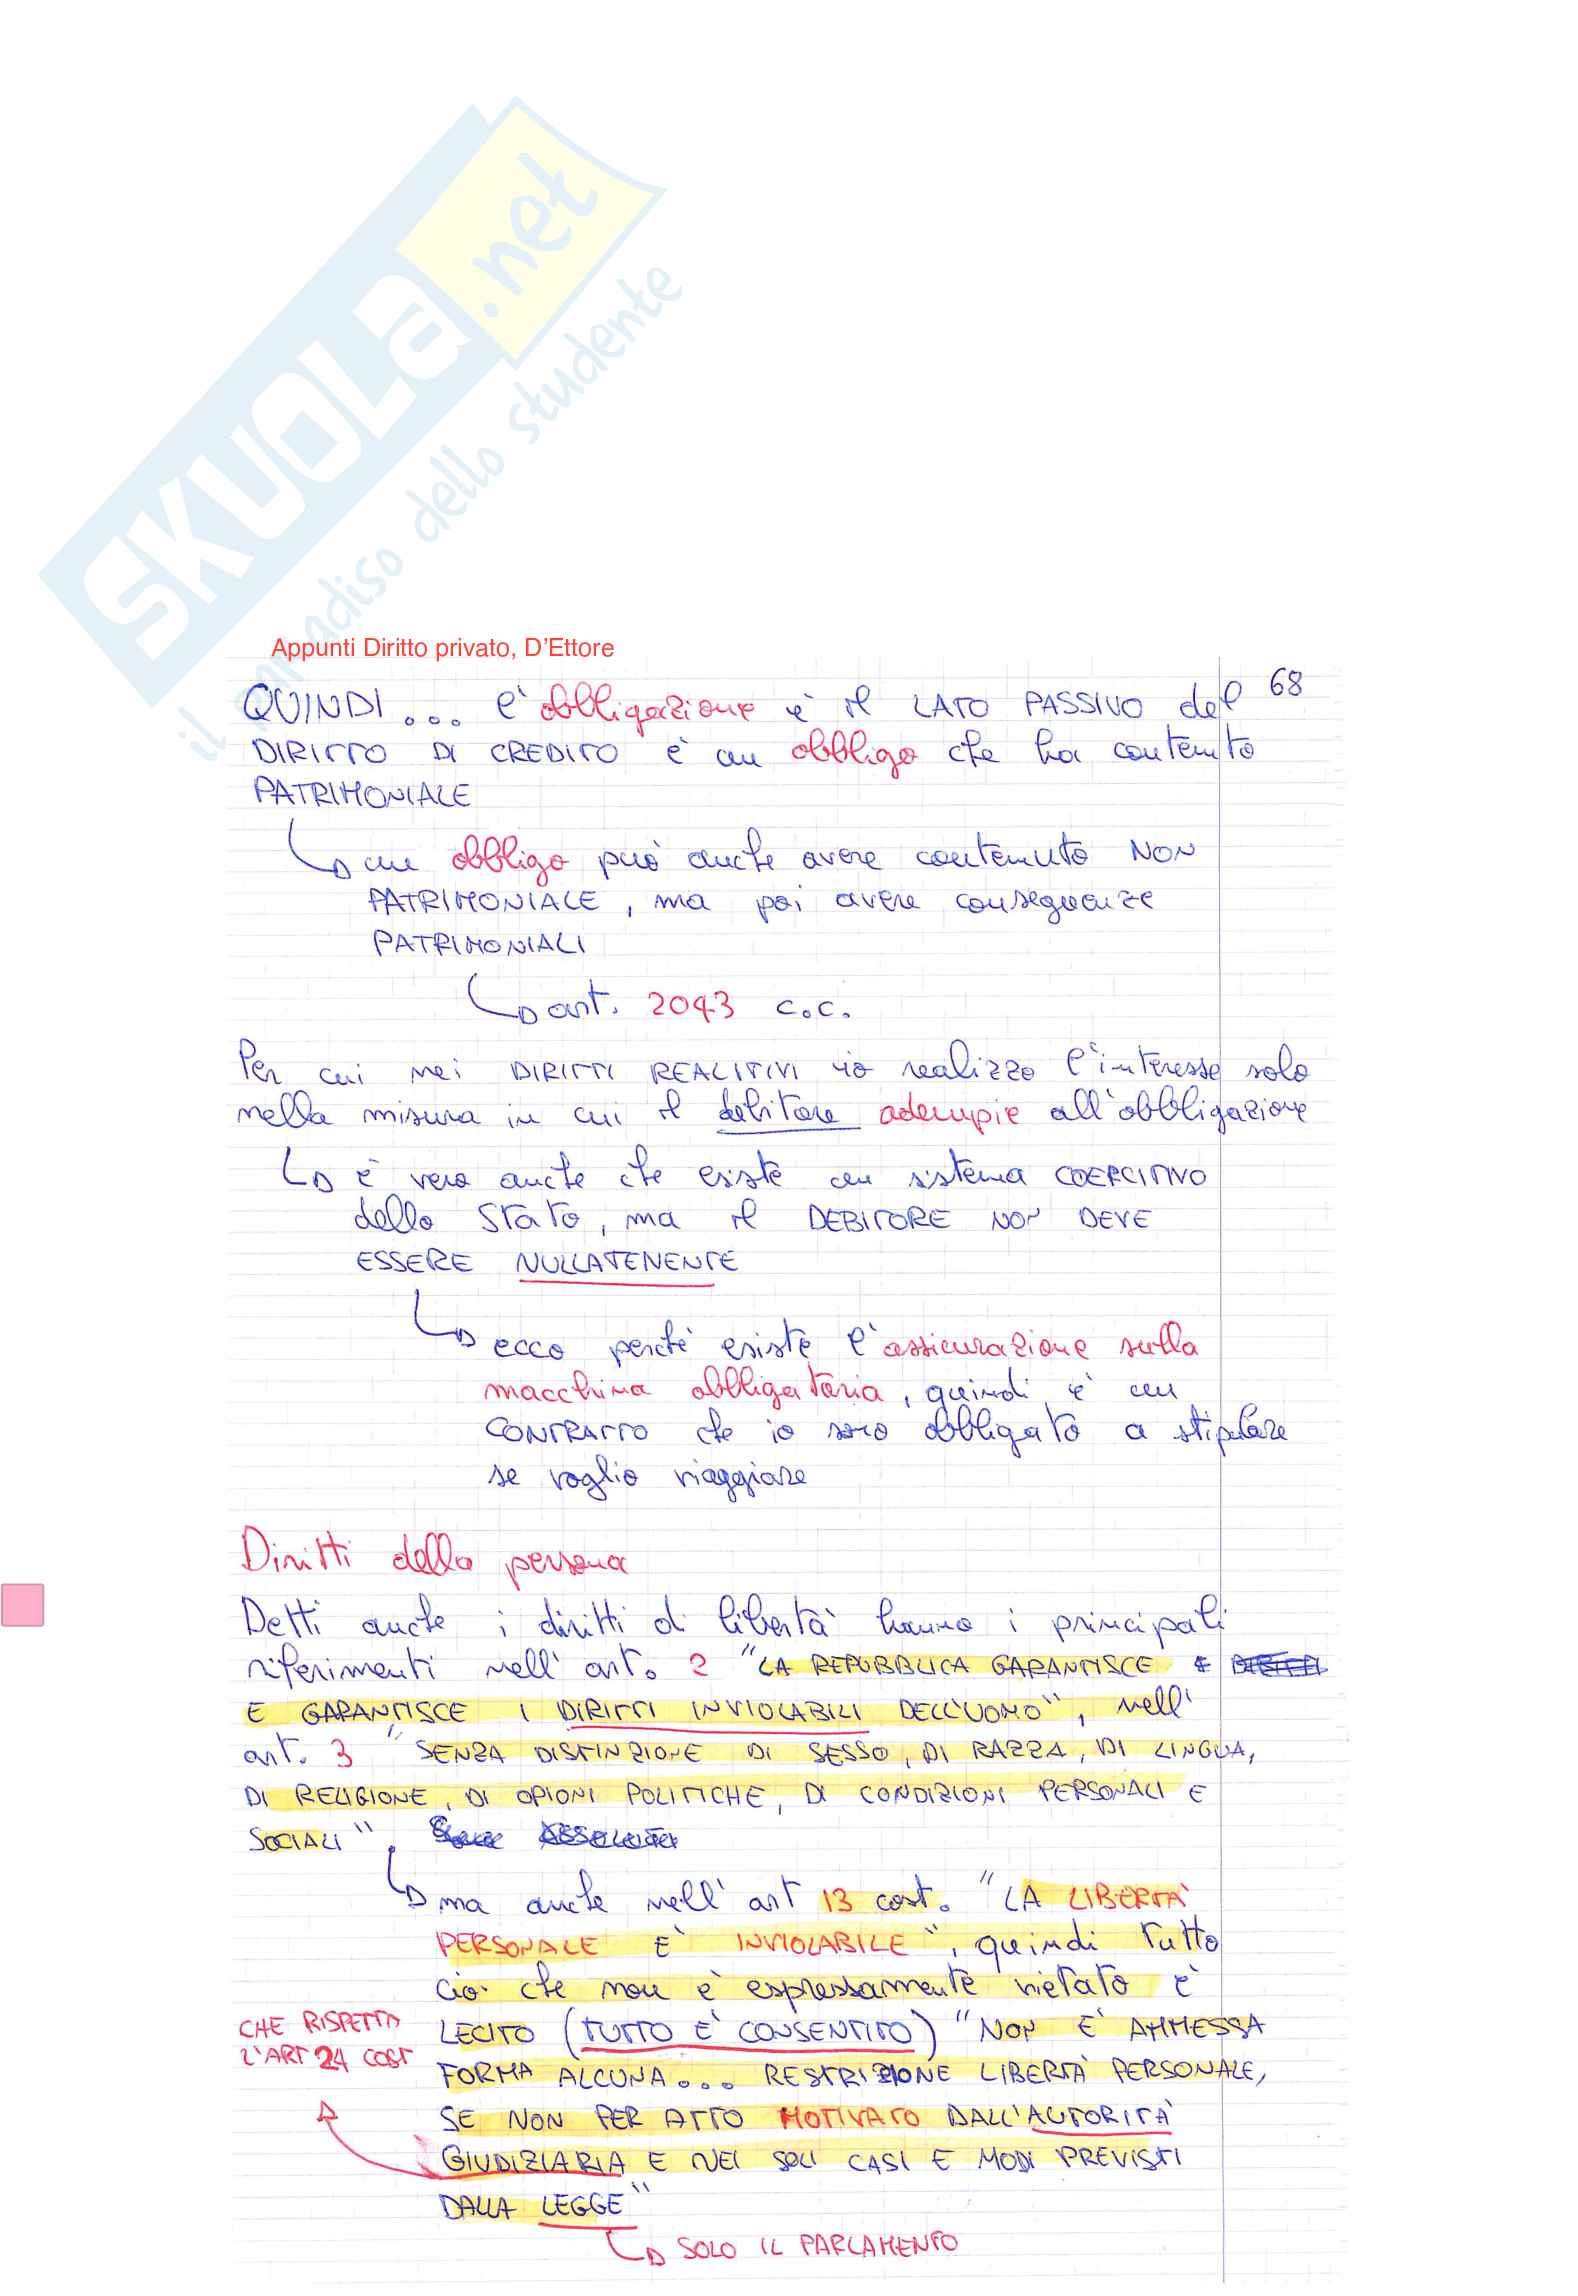 SKUOLA.net
il paradiso dello studente
Appunti Diritto privato, D'Ettore
68
QUINDI... l'obbligazione è il LATO PASSIVO del
DIRITTO DI CREDITO è un obbligo che ha contenuto
PATRIMONIALE
un obbligo può anche avere contenuto NON
PATRIMONIALE, ma poi avere conseguenze
PATRIMONIALI
art. 2043 c.c.
Per cui nei DIRITTI REALITIVI io realizzo l'interesse solo
nella misura in cui il debitore adempie all'obbligazione
è vero anche che esiste un sistema COERCITIVO
dello Stato, ma il DEBITORE NON DEVE
ESSERE NULLATENENTE
ecco perché esiste l'assicurazione sulla
macchina obbligatoria, quindi è un
CONTRATTO che io sono obbligato a stipulare
se voglio viaggiare
Diritti della persona
Detti anche i diritti di libertà hanno i principali
riferimenti nell'art. 2 "LA REPUBBLICA GARANTISCE E
E GARANTISCE I DIRITTI INVIOLABILI DELL'UOMO", nell'
art. 3 "SENZA DISTINZIONE DI SESSO, DI RAZZA, DI LINGUA,
DI RELIGIONE, DI OPIONI POLITICHE, DI CONDIZIONI PERSONALI E
SOCIALI".
ma anche nell'art 13 cost. "LA LIBERTÀ
PERSONALE È INVIOLABILE", quindi tutto
ciò che non è espressamente vietato è
LECITO (TUTTO È CONSENTITO) "NON È AMMESSA
FORMA ALCUNA... RESTRIZIONE LIBERTÀ PERSONALE,
SE NON PER ATTO MOTIVATO DALL'AUTORITÀ
GIUDIZIARIA E NEI SOLI CASI E MODI PREVISTI
DALLA LEGGE"
CHE RISPETTA
L'ART 24 COST
SOLO IL PARLAMENTO